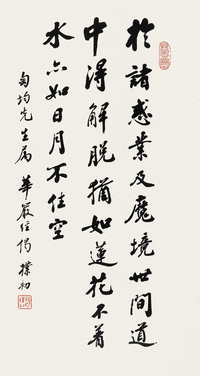 於諸惑業及魔境世間道
中得解脱猶如蓮花不着
水亦如日月不住空
匋均先生属 華嚴經偈 樸初